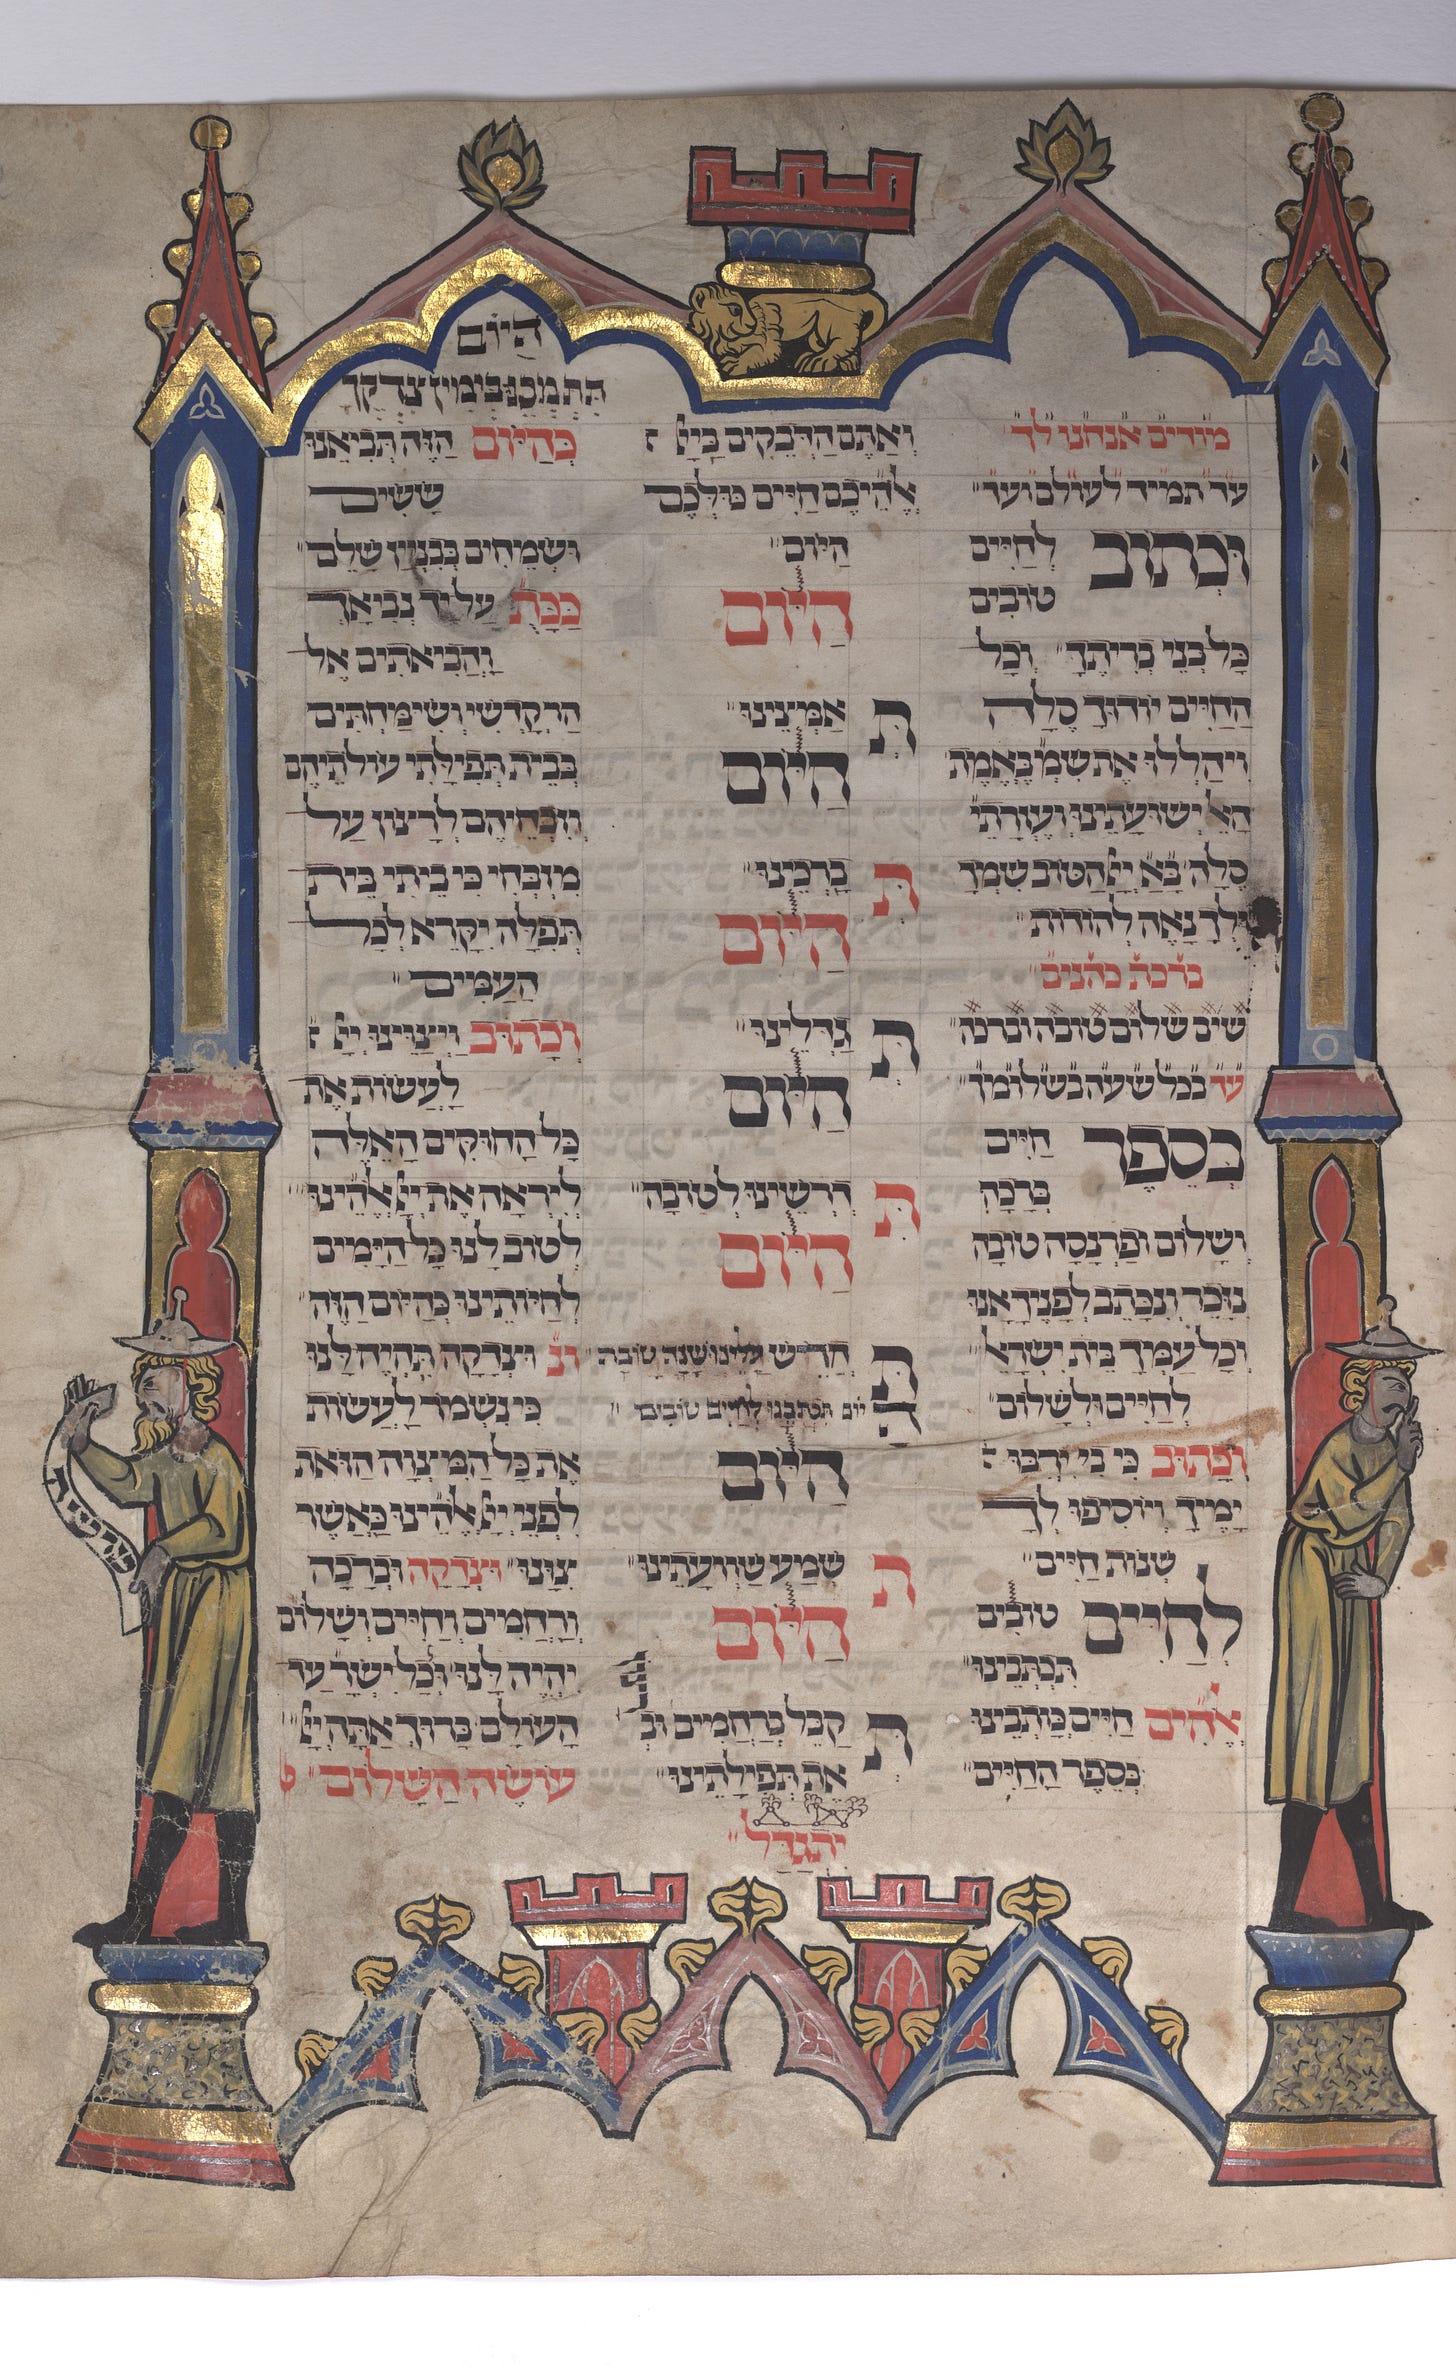 מודים אנחנו לך
עד תמיד לעולם ועד
וּכְתוֹב לְחַיִּים
טוֹבִים
כָּל בְּנֵי בְרִיתֶךָ וְכָל
הַחַיִּים יוֹדוּךָ סֶלָה
וִיהַלְלוּ אֶת שִׁמְךָ בֶּאֱמֶת
הָאֵל יְשׁוּעָתֵינוּ וְעֶזְרָתֵי
סֶלָה הַטּוֹב שִׁמְךָ
וּלְךָ נָאֶה לְהוֹדוֹת
ברכת כהנים
שים שלום טובה וברכה
עד בכל שעה בשלומך
בְּסֵפֶר חַיִּים
בְּרָכָה
וְשָׁלוֹם וּפַרְנָסָה טוֹבָה
נִזָּכֵר וְנִכָּתֵב לְפָנֶיךָ אָנוּ
וְכָל עַמְּךָ בֵּית יִשְׂרָאֵל
לְחַיִּים וּלְשָׁלוֹם
וְכָתוּב כִּי בִי יִרְבּוּ
יָמֶיךָ וְיוֹסִיפוּ לְךָ
שְׁנוֹת חַיִּים
לְחַיִּים טוֹבִים
תִּכְתְּבֵינוּ
אֱלֹהִים חַיִּים כָּתְבֵינוּ
בְּסֵפֶר הַחַיִּים
וְאַתֶּם הַדְּבֵקִים בַּייָ
אֱלֹהֵיכֶם חַיִּים כּוּלְּכֶם
הַיּוֹם
הַיּוֹם
תְּ אַמְּצֵינוּ
הַיּוֹם
תְּ בָרְכֵינוּ
הַיּוֹם
תְּ גַדְּלֵינוּ
הַיּוֹם
תִּ דְרְשֵׁינוּ לְטוֹבָה
הַיּוֹם
תְּ חַדֵּישׁ עָלֵינוּ שָׁנָה טוֹבָה
ה יוֹם תִּכְתְּבֵנוּ לְחַיִּים טוֹבִים
הַיּוֹם
תִ שְׁמַע שַׁוְעָתֵינוּ
הַיּוֹם
תְּ קַבֵּל בְּרַחֲמִים וּבְ
אֶת תְּפִילָתֵינוּ
יִתְגַּדַּל
הַיּוֹם
תִּתְמְכֵנוּ בִּימִין צִדְקֶךָ
כְּהַיּוֹם הַזֶּה תְּבִיאֵנוּ
שָׂשִׂים
וּשְׂמֵחִים בְּבִנְיַן שָׁלֵם
כַּכָּתוּב עַל יַד נְבִיאֶךָ
וַהֲבִיאֹתִים אֶל
הַר קָדְשִׁי וְשִׂימַּחְתִּים
בְּבֵית תְּפִילָּתִי עוֹלֹתֵיהֶם
וְזִבְחֵיהֶם לְרָצוֹן עַל
מִזְבְּחִי כִּי בֵיתִי בֵּית
תְּפִלָּה יִקָּרֵא לְכָל
הָעַמִּים
וְכָתוּב וַיְצַוֵּינוּ יְיָ
לַעֲשׂוֹת אֶת
כָּל הַחוּקִּים הָאֵלֶּה
לְיִרְאָה אֶת יְיָ אֱלֹהֵינוּ
לְטוֹב לָנוּ כָּל הַיָּמִים
לְחַיּוֹתֵינוּ כְּהַיּוֹם הַזֶּה
וכ וּצְדָקָה תִּהְיֶה לָּנוּ
כִּי נִשְׁמֹר לַעֲשׂוֹת
אֶת כָּל הַמִּצְוָה הַזֹּאת
לִפְנֵי יְיָ אֱלֹהֵינוּ כַּאֲשֶׁר
צִוָּנוּ וּצְדָקָה וּבְרָכָה
וְרַחֲמִים וְחַיִּים וְשָׁלוֹם
יִהְיֶה לָּנוּ וּלְכָל יִשְׂרָ עַד
הָעוֹלָם בָּרוּךְ אַתָּה יְיָ
עוֹשֶׂה הַשָּׁלוֹם